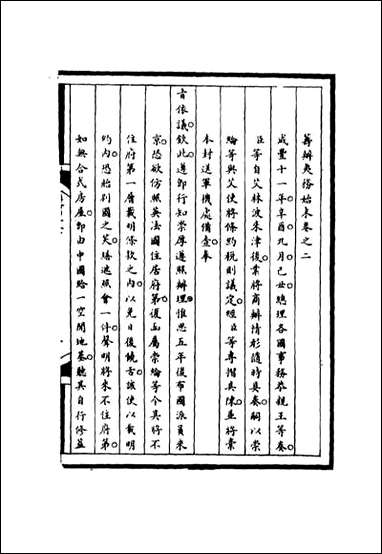 籌辦夷務始末卷之二
咸豐十一年辛酉九月己丑總理各國事務恭親王等奏
臣等自艾林波朱津後業將商辦情形隨時具奏嗣以崇
綸等與艾使將條約稅則議定經臣等專摺具陳並將案
本封送軍機處備查奉
旨依議欽此遵即行知崇厚遵照辦理惟思五年後布國派員來
京恐欲仿照英法國住居府第復函屬崇綸等令其將不
住府第一層載明條款之內以免日後饒舌該使以載明
約內恐貽別國之笑隨遞照會一件聲明將來不住府第
如無合式房屋即由中國給一空閒地基聽其自行修蓋